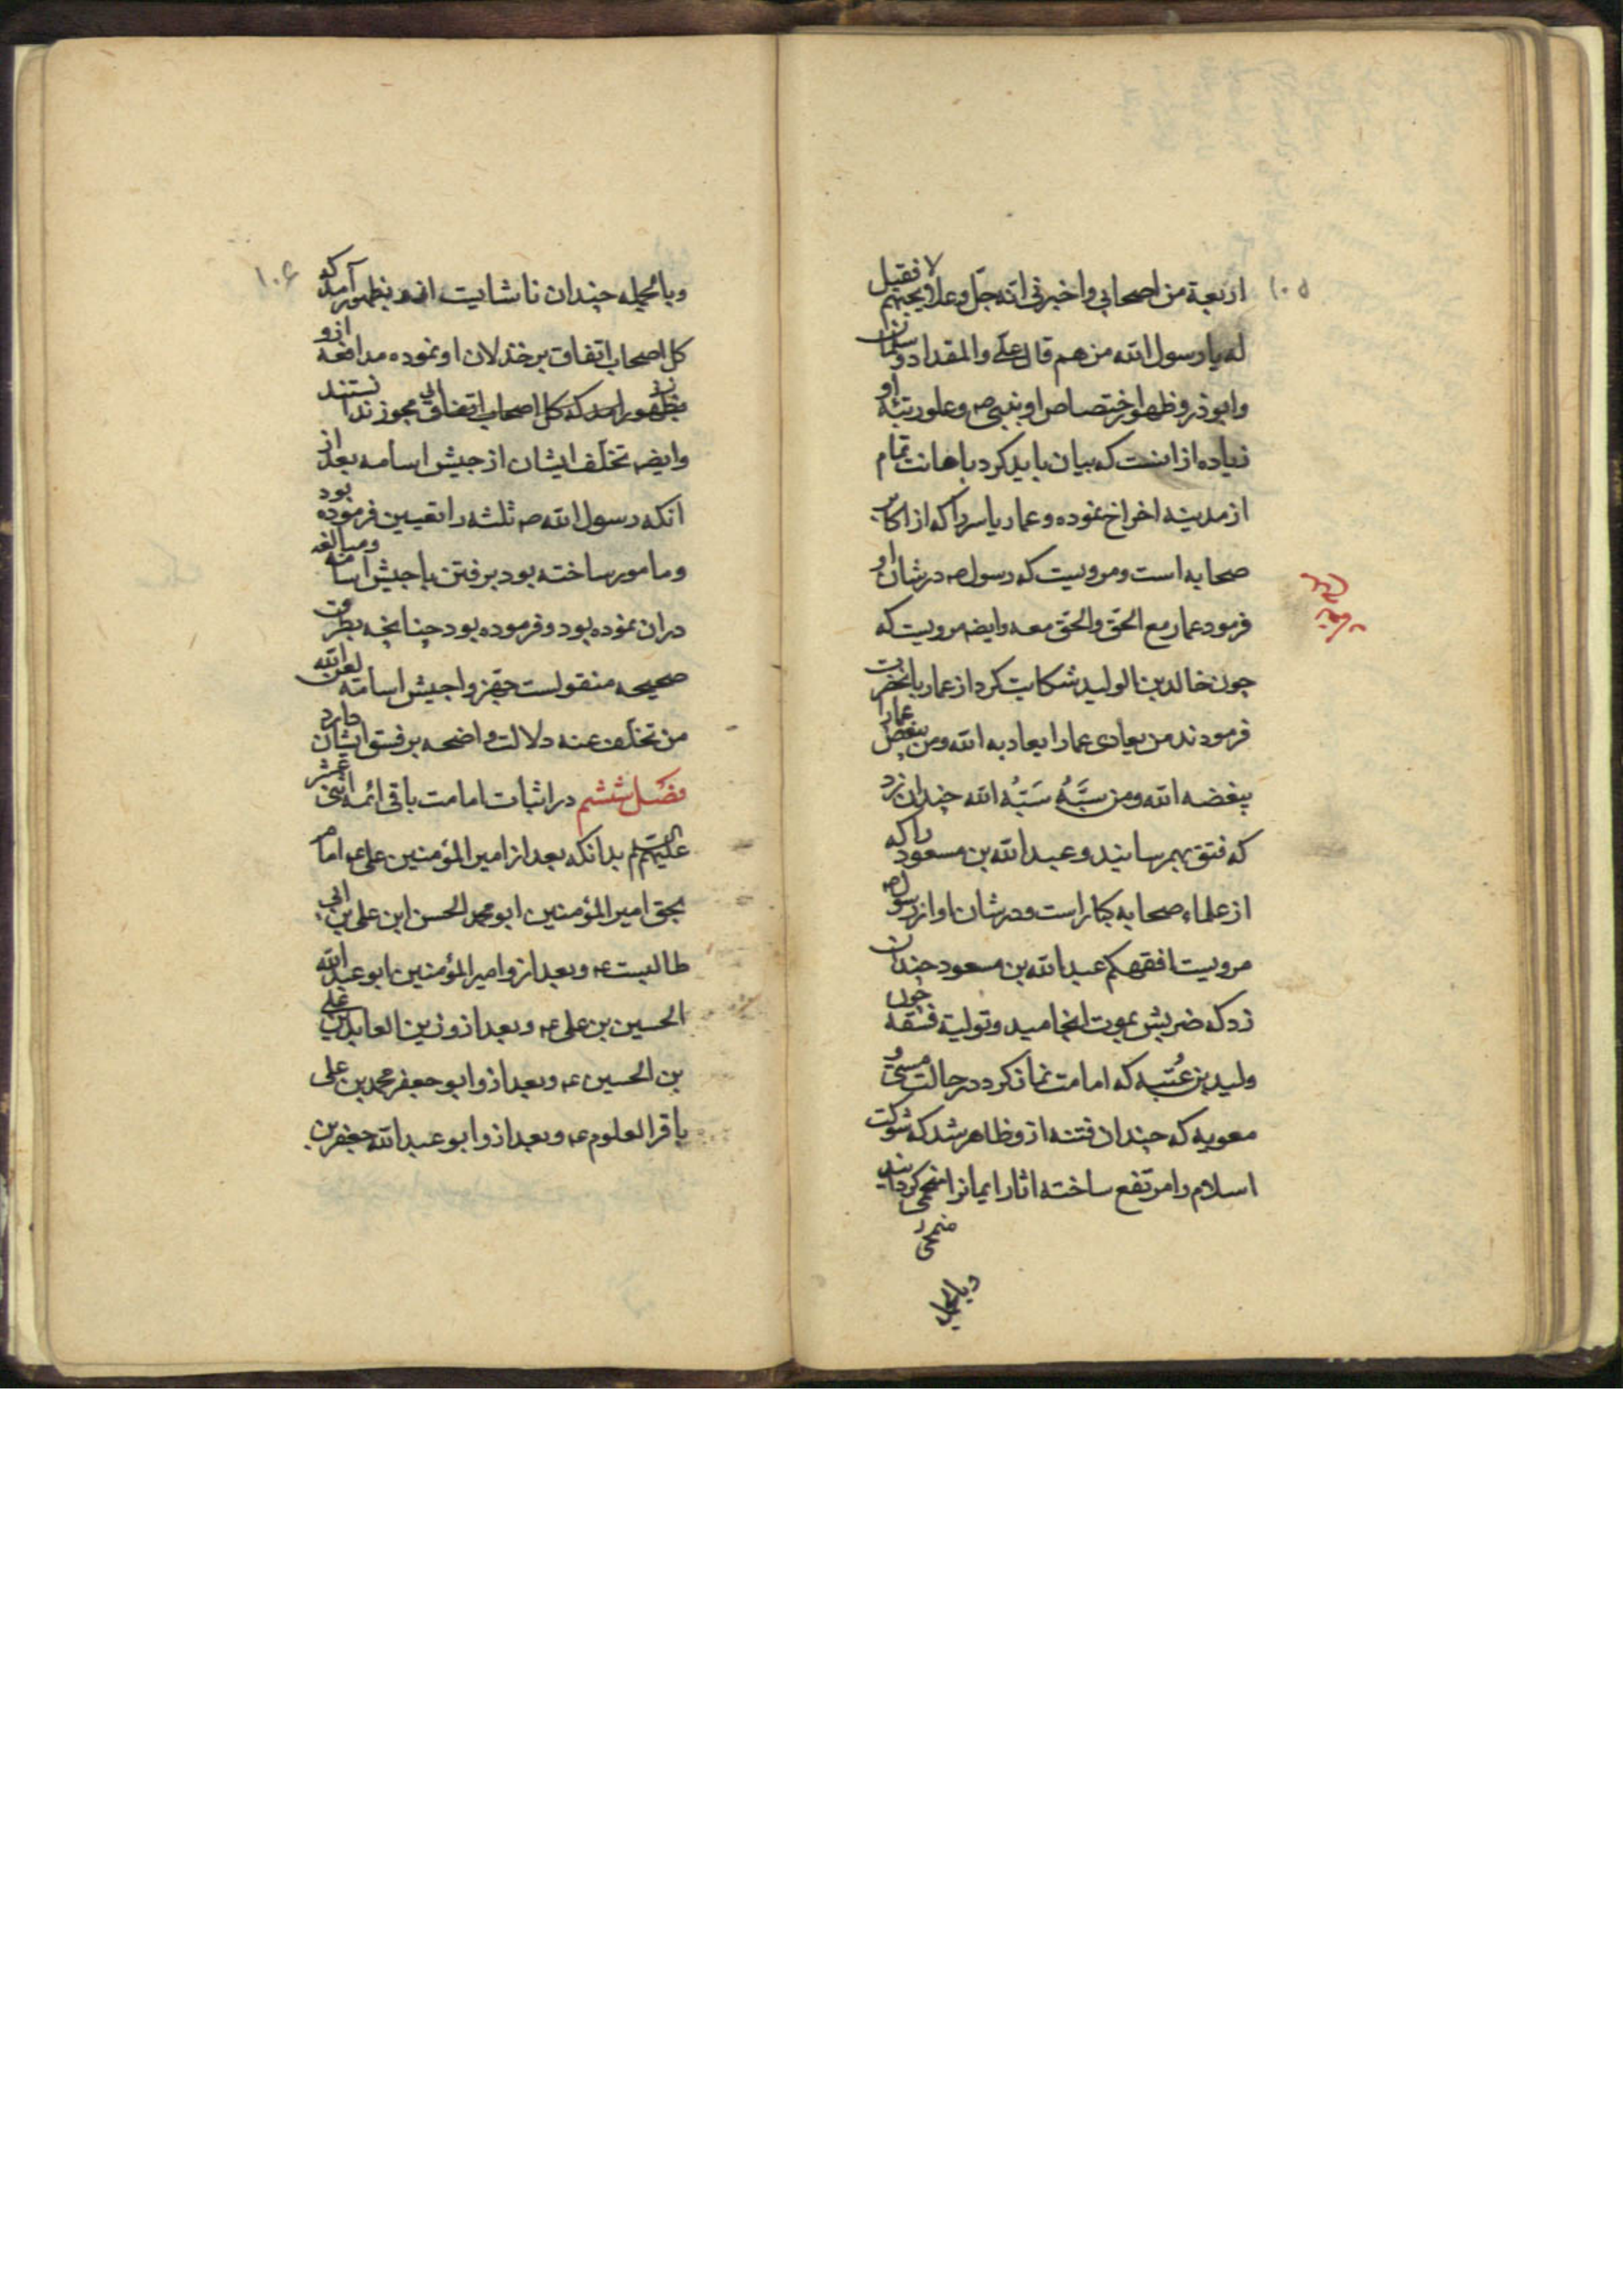 ۱۰۵
اربعة من اصحابی و اخبرنی انه جل و علا یحبهم فقیل
له یا رسول الله من هم قال علی و المقداد و سلمان
و ابوذر و ظهور اختصاص او بنبی ص و علو رتبه او
زیاده از انست که بیان باید کرد باهانت تمام
از مدینه اخراج نموده و عمار یاسر را که از اکابر
صحابه است و مرویست که رسول ص در شان او
فرمود عمار مع الحق و الحق معه و ایضا مرویست که
چون خالد بن الولید شکایت کرد از عمار بانحضرت
فرمودند من یعادی عمارا یعادیه الله و من یبغض عمارا
یبغضه الله و من سبَّهُ سَبَّهُ الله چندان زد
که فتق بهم رسانید و عبد الله بن مسعود را که
از علماء صحابه کبار است و در شان او از رسول ص
مرویست افقهکم عبد الله بن مسعود چندان
زد که ضربش بموت انجامید و تولیة فسقه چون
ولید بن عُتبه که امامت نماز کرد در حالت مستی و
معویه که چندان فتنه ازو ظاهر شد که شوکت
اسلام را مرتفع ساخته اثار ایمانرا گردانید
وبالجمله
۱۰۶
و بالجمله چندان ناشایست ازو بظهور آمد که
کل اصحاب اتفاق بر خذلان او نموده مدافعه ازو
بظهور آمد که کل اصحاب اتفاق
و ایضا تخلف ایشان از جیش اسامه بعد از
انکه رسول الله ص ثلثه را تعیین فرموده بود
و مامور ساخته بود برفتن با جیش اسامه و مبالغه
در ان نموده بود و فرموده بود چنانچه بطرق
صحیحه منقولست جهزوا جیش اسامه لعن الله
من تخلف عنه دلالت واضحه بر فسق ایشان دارد
فصل ششم در اثبات امامت باقی ائمه اثنی عشر
علیهم السلم بدانکه بعد از امیر المؤمنین علی ع امام
بحق امیر المؤمنین ابو محمد الحسن ابن علی بن ابی
طالبست ع و بعد ازو امیر المؤمنین ابو عبد الله
الحسین بن علی ع و بعد ازو زین العابدین علی
بن الحسین ع و بعد ازو ابو جعفر محمد بن علی
باقر العلوم ع و بعد ازو ابو عبد الله جعفر بن